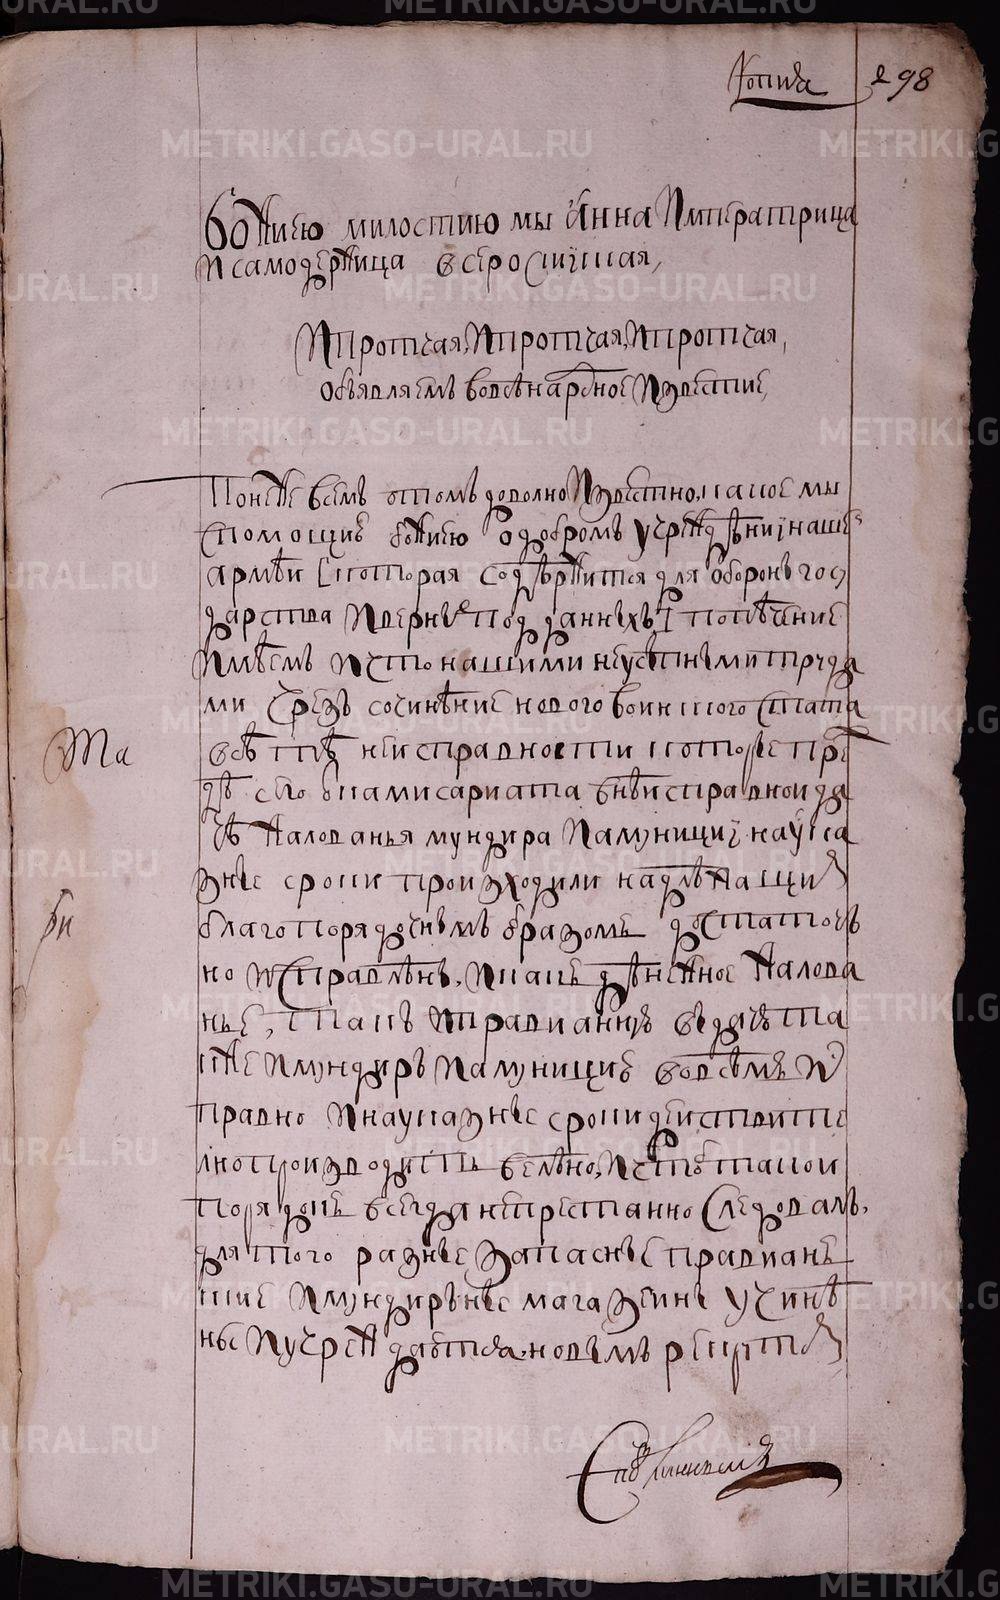 Копия 298
Божиею милостию мы Анна Императрица
и самодержица всеросийская,
и протчая, и протчая, и протчая,
объявляемъ вовсенародное известие,
Понеже всемъ отомъ доволно известно, какое мы
спомощие божиею о добромъ учреждени нашей
армеи [которая содержится для обороны госу
дарства и верныхъ подданныхъ] попечение
имеемъ и что нашими неусыпными труда
ми чрезъ сочинение нового воинского стата
все те неисправности которые пре
де сего от камисариата в неисправной да
че жалованья мундира и амуницыи на ука
зные сроки произходили надлежащим
благопорядочнымъ образомъ достаточ
но исправлены, и какъ денежное жалова
нье, такъ и правиантъ в
же и мундиръ и амуницие вовсемъ ис
правно и на указные сроки действите
лно производить велено, и чтоб такой
порядокъ всегда непрестанно следовалъ,
для того разные запасные правиан
ские и мундирные магазеины учине
ны и учреждаются, новымъ рекрутом
Та
би